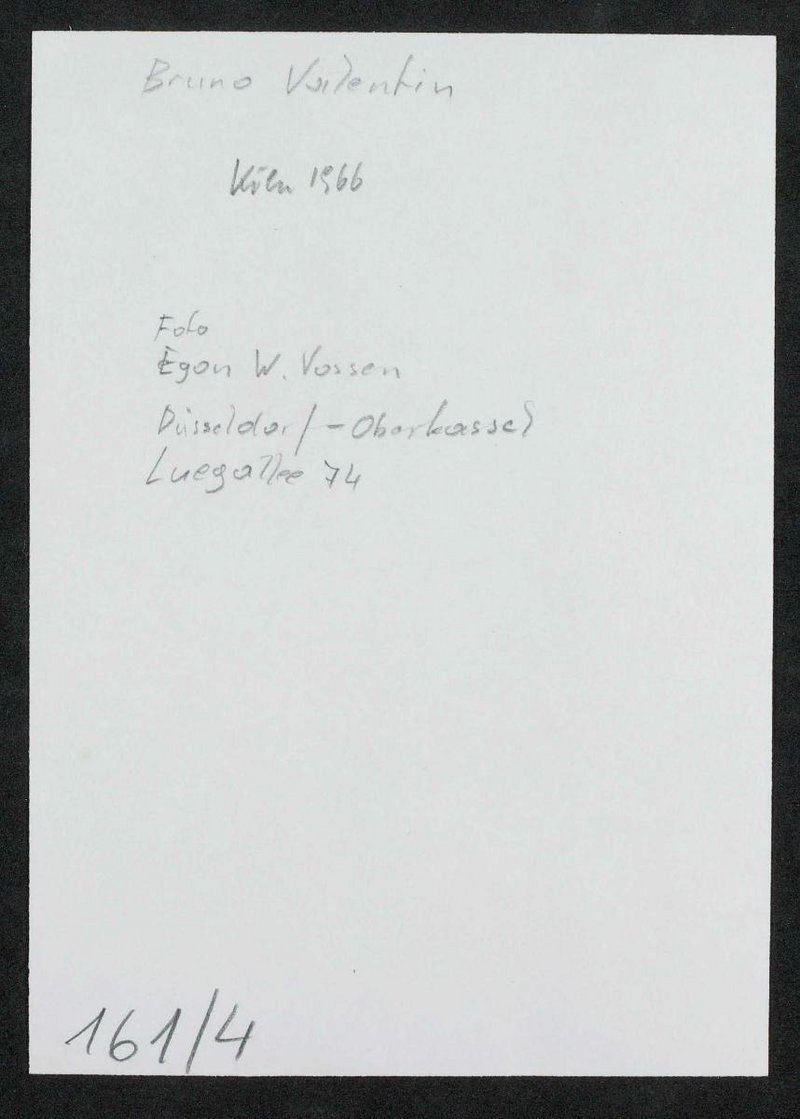 Bruno Valentin
Köln 1966
Foto
Egon W. Vossen
Düsseldorf - Oberkassel
Luegallee 74
161/4